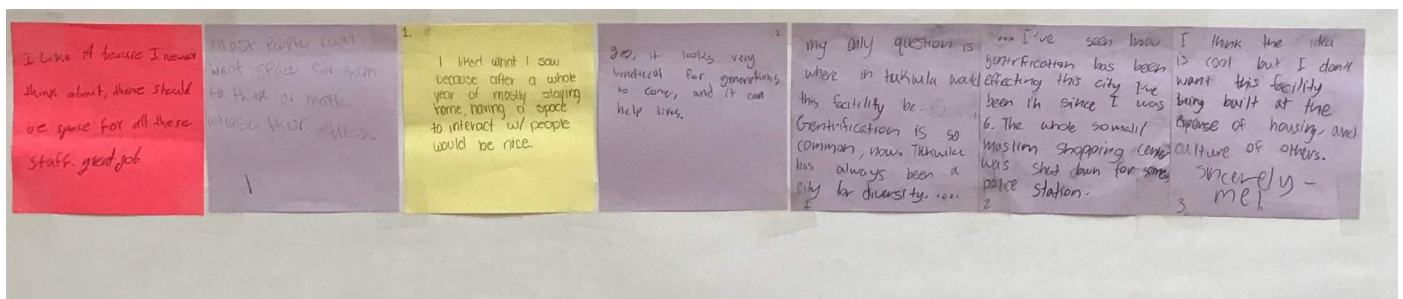 I like it because I never
think about, there should
be space for all these
staff. great job
most people really
want space for them
to think or maybe
release their stress.
1
1.
I liked what I saw
because after a whole
year of mostly staying
home, having a space
to interact w/ people
would be nice.
1
yes, it looks very
benificial for generations
to come, and it can
help lives.
my only question is
where in tukwila would
this facility be.
Gentrification is so
common, now. Tukwila
has always been a
city for diversity. ....
1
... I've seen how
gentrification has been
effecting this city I've
been in since I was
6. The whole somali/
muslim shopping center
was shut down for some
police station.
2
I think the idea
is cool but I don't
want this facility
being built at the
expense of housing, and
culture of others.
sincerely -
me!
3